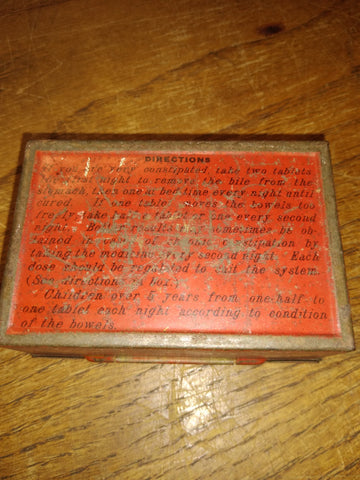 DIRECTIONS
If you are very constipated take two tablets
first night to remove the bile from the
stomach, then one a bed time every night until
cured. If one tablet moves the bowels too
freely take half a tablet or one every second
night. Better results may sometimes be ob-
tained in cases of chronic constipation by
taking the medicine every second night. Each
dose should be regulated to suit the system.
(See directions in box)
Children over 5 years from one-half to
one tablet each night according to condition
of the bowels.